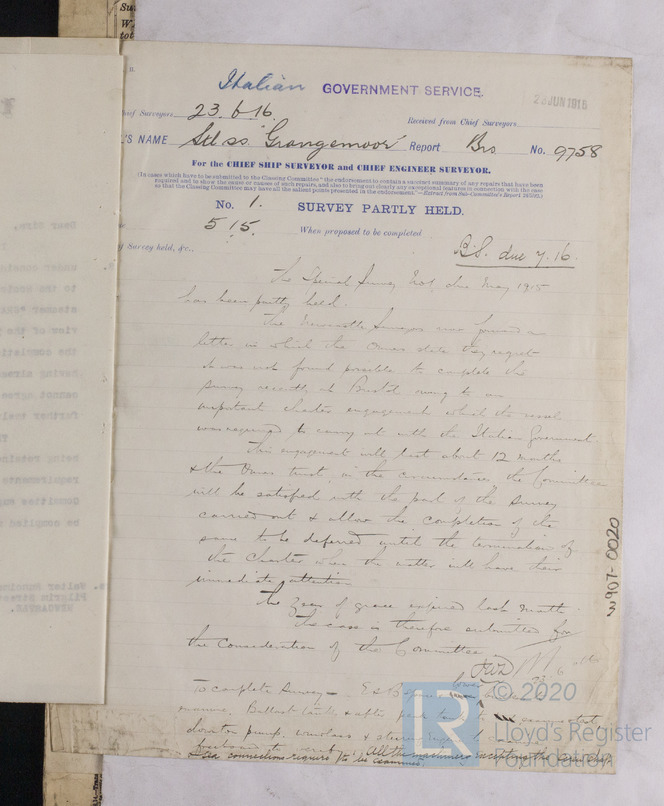 Italian GOVERNMENT SERVICE.
23 JUN 1916
Chief Surveyors 23.6.16.
Received from Chief Surveyors
L'S NAME Stl ss "Grangemoor" Report Brs. No. 9758
For the CHIEF SHIP SURVEYOR and CHIEF ENGINEER SURVEYOR.
(In cases which have to be submitted to the Classing Committee "the endorsement to contain a correct summary of any repairs that have been
required and to show the cause or causes of such repairs, and also to bring out clearly any exceptional features in connection with the case
so that the Classing Committee may have all the salient points presented in the endorsement."—Extract from Sub-Committee's Report
No. 1. SURVEY PARTLY HELD.
5 15. When proposed to be completed
B.S. due 7.16.
of Survey held, &c..
The Special Survey No 1, due May 1915
has been partly held.
The Newcastle Surveyors now forward a
letter in which the Owners state they regret
it was not found possible to complete the
survey recently at Bristol owing to an
important charter engagement which the vessel
was required to carry out with the Italian Government.
This engagement will last about 12 months
& the Owners trust, in the circumstances, the Committee
will be satisfied with the part of the survey
carried out & allow the completion of the
same to be deferred until the termination of
the Charter when the matter will have their
immediate attention.
The year of grace expired last month.
The case is therefore submitted for
the Consideration of the Committee
To complete Survey—
Ballast tanks & after peak
donkey pump, windlass & steering
All the machinery excepting the screw shaft
Sea connections require to be examined.
3907-0020
© 2020
LR
Lloyd's Register
Foundation
Dear Sirs,
under consid
to the Soci
steamer "GRA
view of the
the completi
having alrea
cannot agree
further
being retain
requirements
Committee
be complied
Walter Runciman
Pilgrim Street
NEWCASTLE.